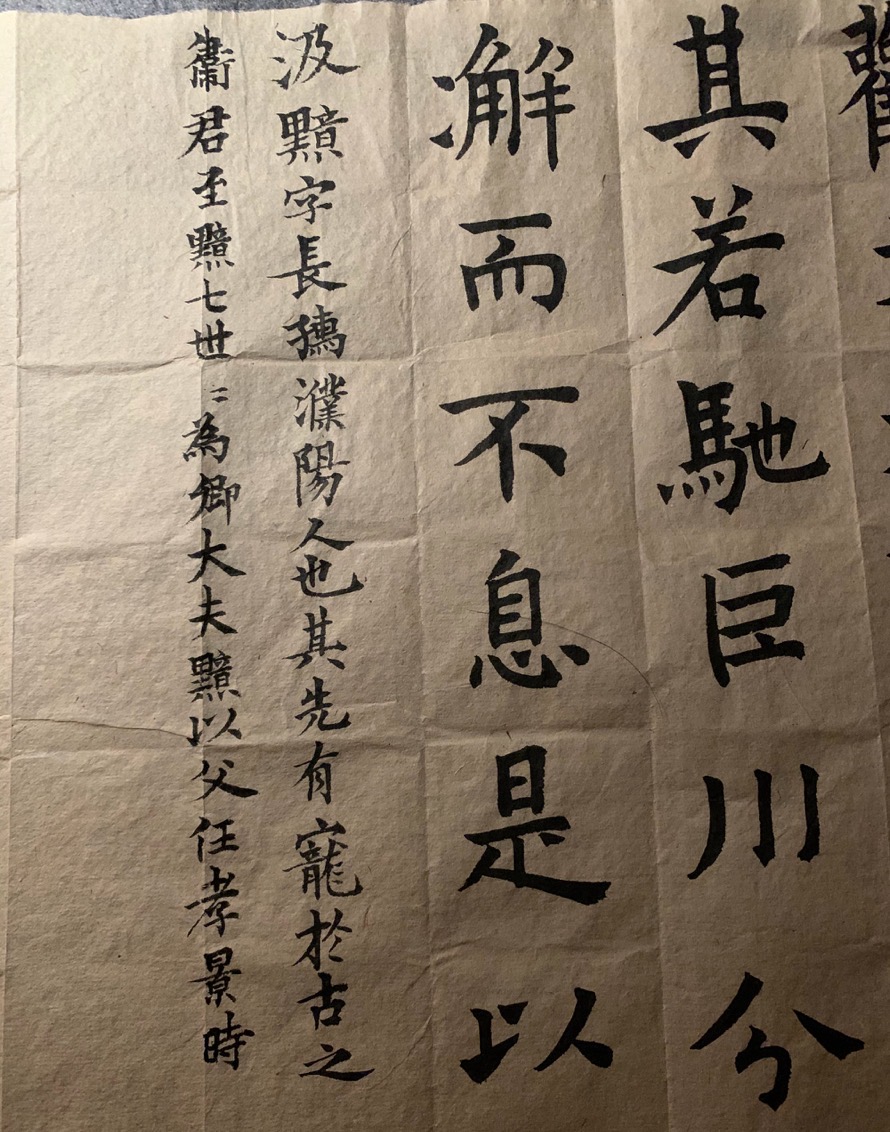 觀
其若馳臣川分
澥而不息是以
汲黯字長孺濮陽人也其先有寵於古之
衞君至黯七世〻為卿大夫黯以父任孝景時